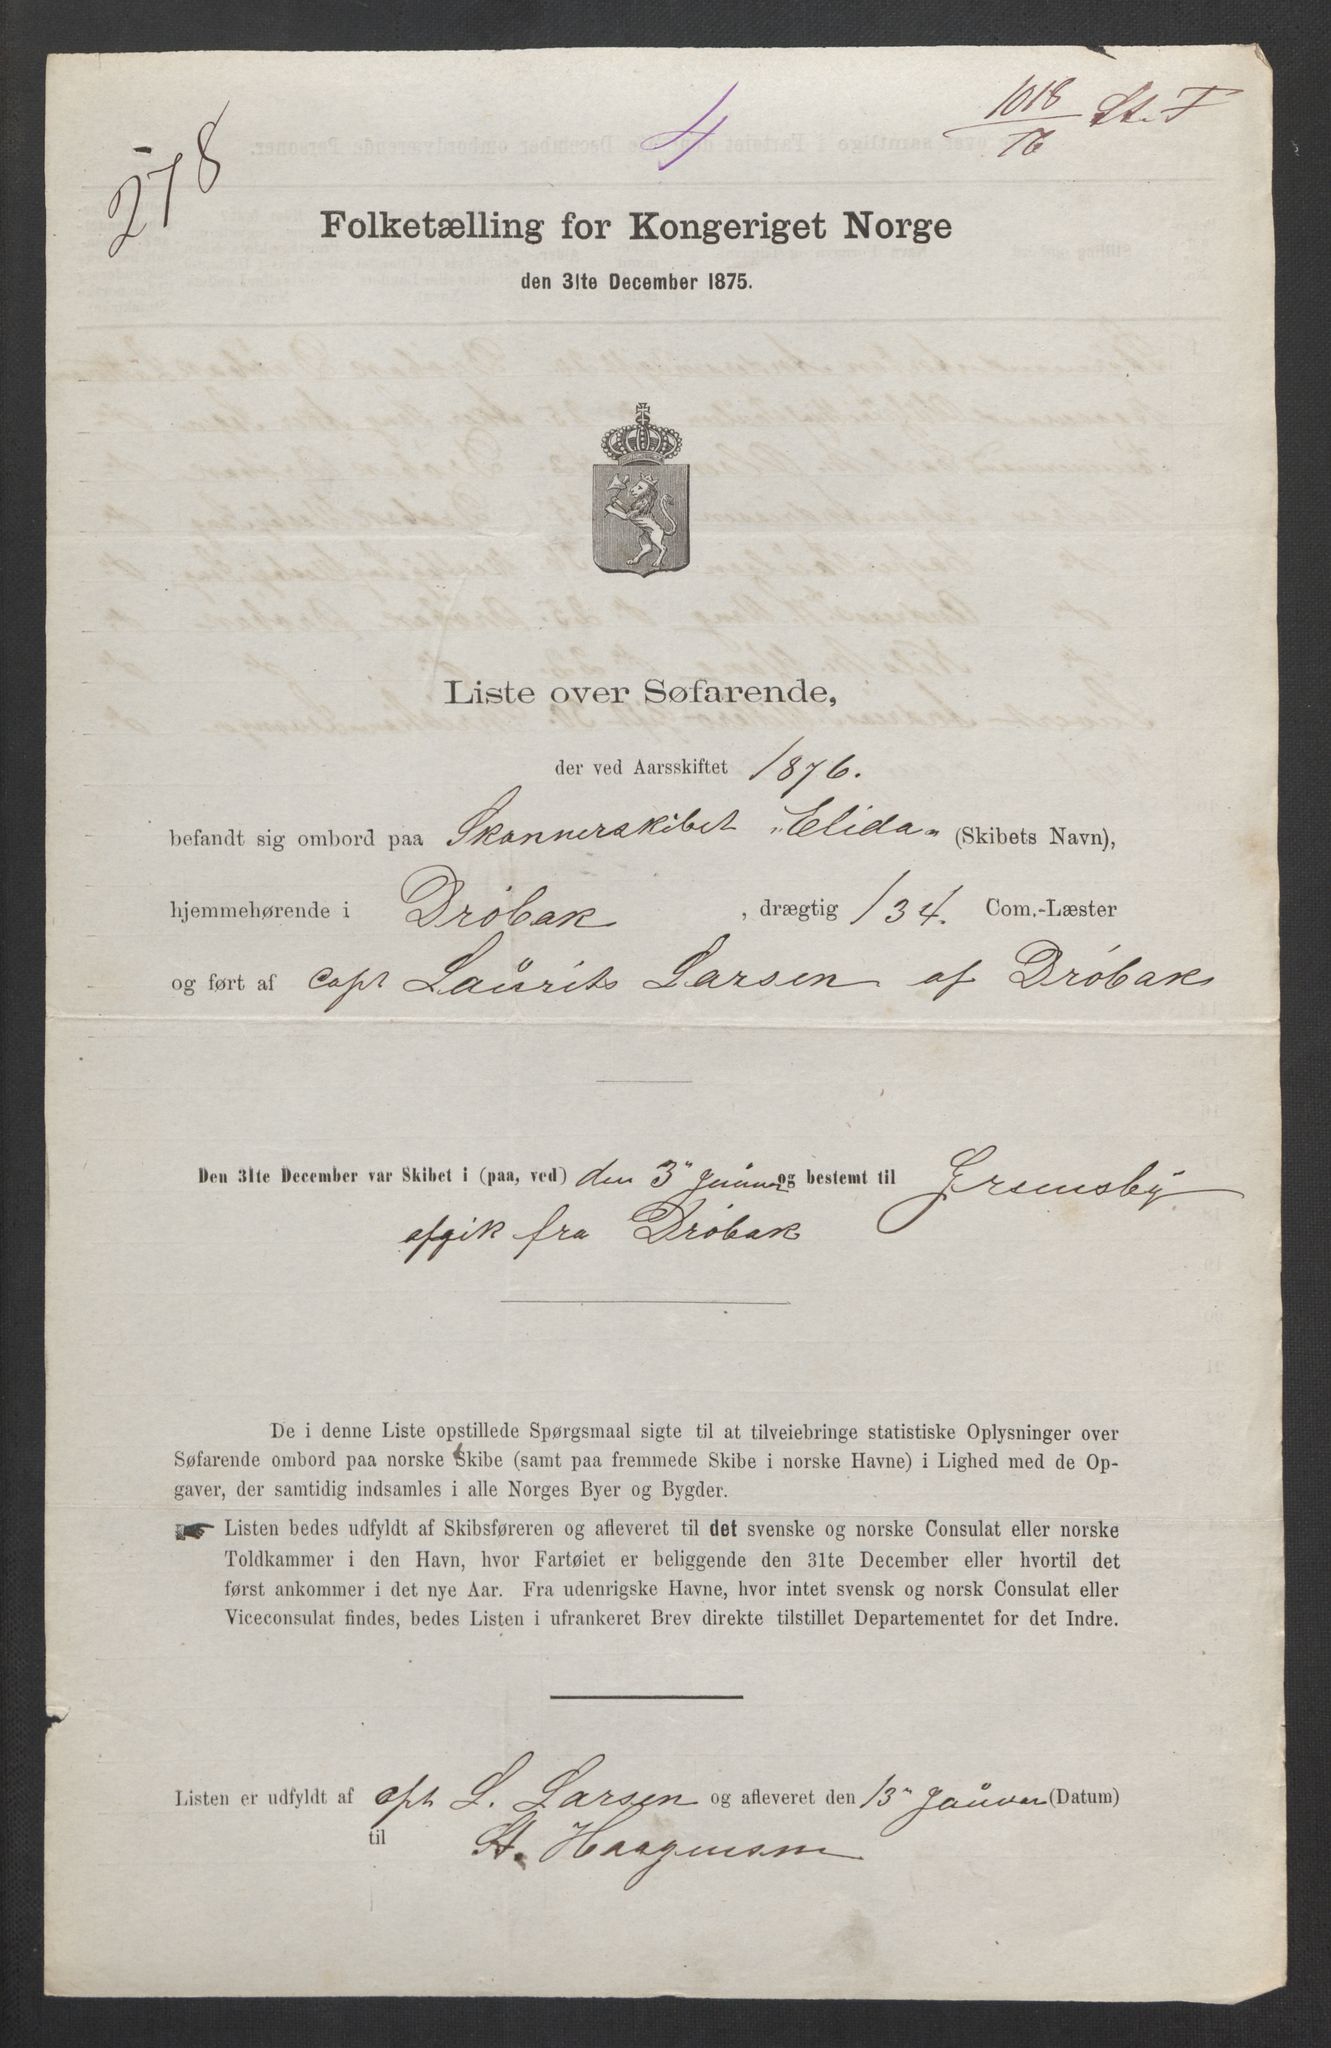 278
4
1018/76 St. F
Folketælling for Kongeriget Norge
den 31te December 1875.
Liste over Søfarende,
der ved Aarsskiftet 1876.
befandt sig ombord paa Skonnerskibet „Elida" (Skibets Navn),
hjemmehørende i Drøbak, drægtig 134. Com.-Læster
og ført af capt Laurits Larsen af Drøbak
Den 31te December var Skibet i (paa, ved) den 3" Januar og bestemt til Gremsby
afgik fra Drøbak
De i denne Liste opstillede Spørgsmaal sigte til at tilveiebringe statistiske Oplysninger over
Søfarende ombord paa norske Skibe (samt paa fremmede Skibe i norske Havne) i Lighed med de Op-
gaver, der samtidig indsamles i alle Norges Byer og Bygder.
☛ Listen bedes udfyldt af Skibsføreren og afleveret til det svenske og norske Consulat eller norske
Toldkammer i den Havn, hvor Fartøiet er beliggende den 31te December eller hvortil det
først ankommer i det nye Aar. Fra udenrigske Havne, hvor intet svensk og norsk Consulat eller
Viceconsulat findes, bedes Listen i ufrankeret Brev direkte tilstillet Departementet for det Indre.
Listen er udfyldt af cpt L. Larsen og afleveret den 13" Januar (Datum)
til St. Haagensen